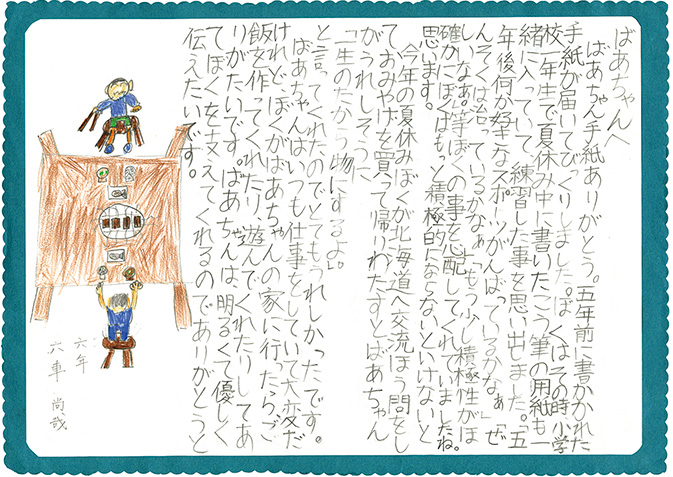 ばあちゃんへ
ばあちゃん手紙ありがとう。五年前に書かれた
手紙が届いてびっくりしました。ぼくはその時小学
校一年生で夏休み中に書いたこう筆の用紙も一
緒に入っていて練習した事を思い出せました。「五
年後何か好きなスポーツがんばっているかなぁ」「ぜ
んそくは治っているかなぁ」「もう少し積極性がほ
しいなぁ」等ぼくの事を心配してくれていましたね。
確かにぼくはもっと積極的にならないといけないと
思います。
今年の夏休みぼくが北海道へ交流ほう問をし
ておみやげを買って帰りわたすとばあちゃん
がうれしそうに
「一生のたから物にするよ」
と言ってくれたのでとてもうれしかったです。
ばあちゃんはいつも仕事をしていて大変だ
けれど、ぼくがばあちゃんの家に行ったらご
飯を作ってくれたり、遊んでくれたりしてあ
りがたいです。ばあちゃんは明るくて優しく
てぼくを支えてくれるのでありがとうと
伝えたいです。
六年
六車 尚哉